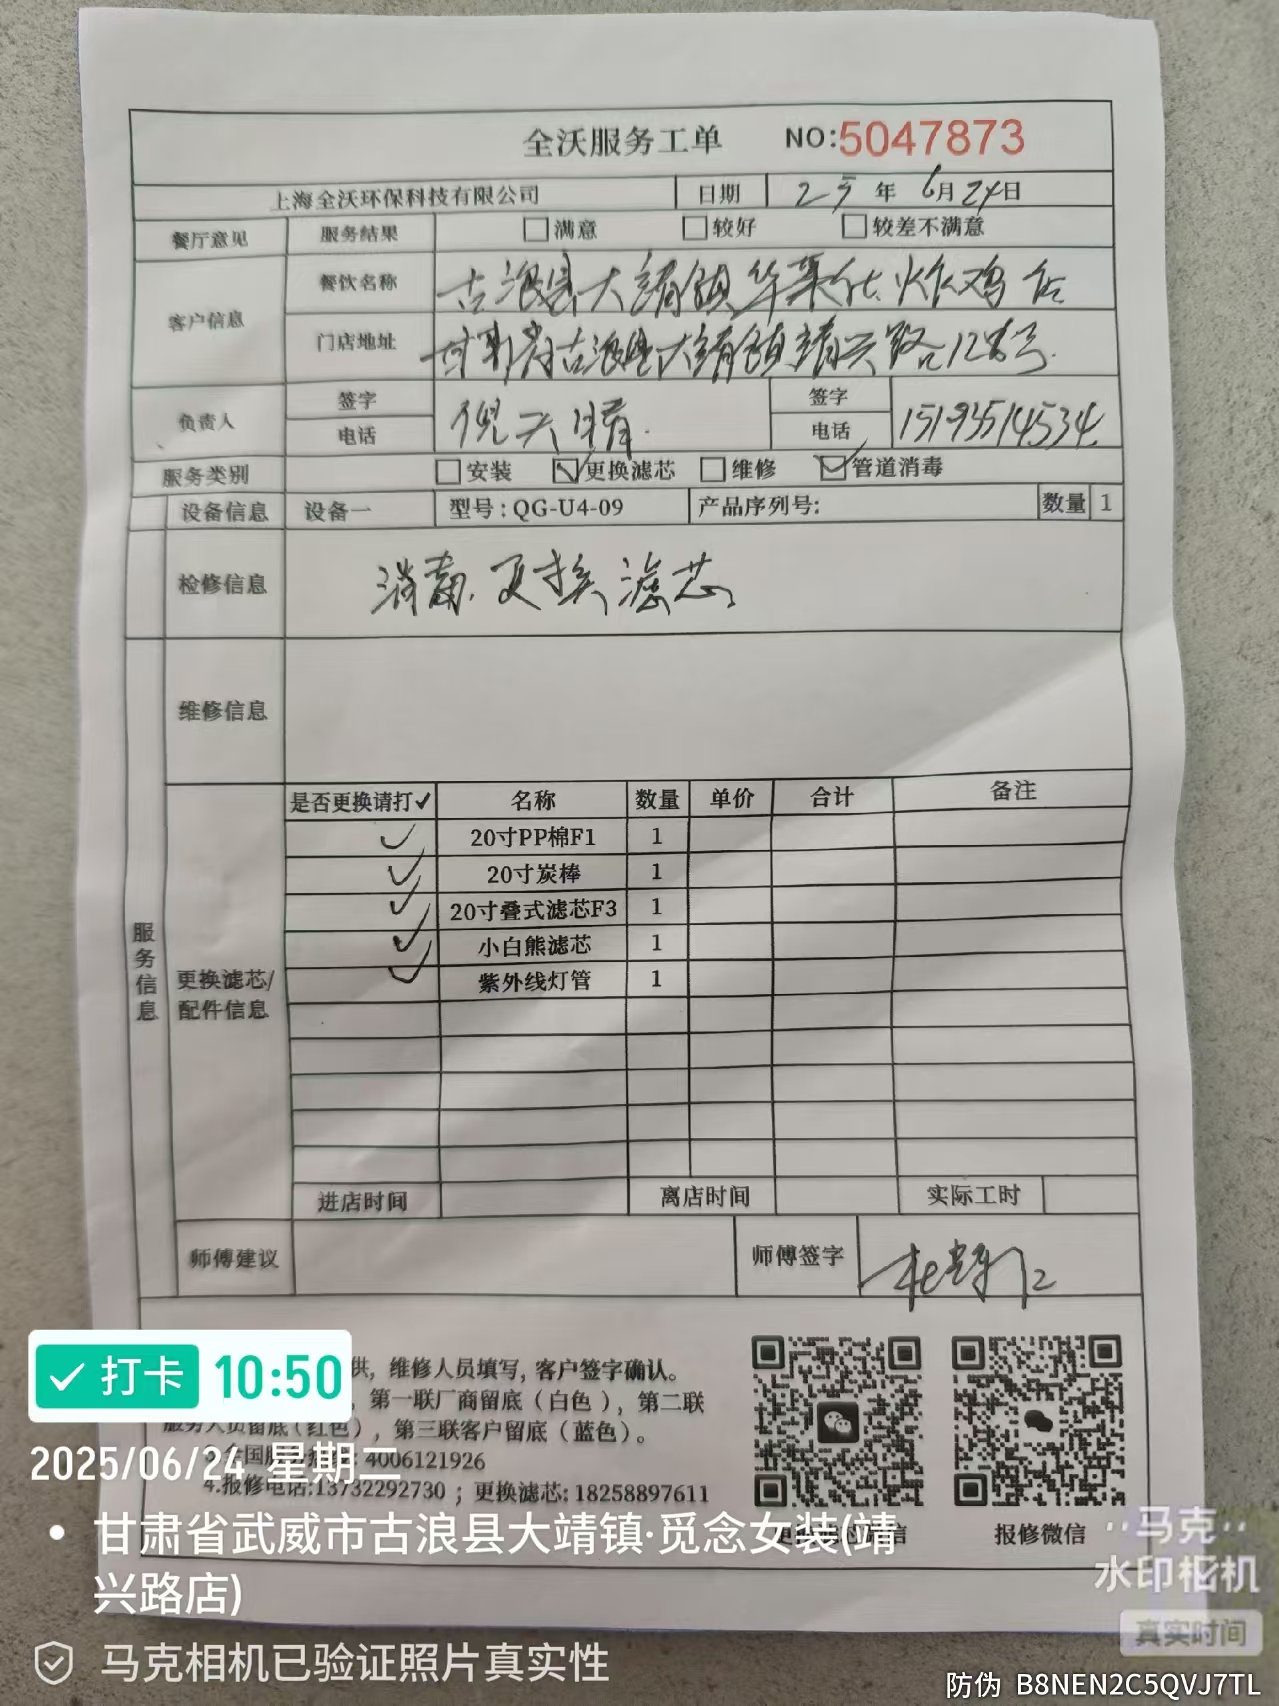 全沃服务工单 NO:5047873
上海全沃环保科技有限公司 日期 25年6月24日
餐厅意见 服务结果 满意 较好 较差不满意
客户信息 餐饮名称 古浪县大靖镇华莱仕炸鸡店
门店地址 甘肃省古浪县大靖镇靖兴路128号
负责人 签字 电话 倪 签字 电话 15193514534
服务类别 安装 更换滤芯 维修 管道消毒
设备信息 设备一 型号:QG-U4-09 产品序列号: 数量 1
检修信息 消毒.更换滤芯
维修信息
服务信息
更换滤芯/配件信息
是否更换请打✓ 名称 数量 单价 合计 备注
✓ 20寸PP棉F1 1
✓ 20寸炭棒 1
✓ 20寸叠式滤芯F3 1
✓ 小白熊滤芯 1
✓ 紫外线灯管 1
进店时间 离店时间 实际工时
师傅建议 师傅签字 杜
供, 维修人员填写, 客户签字确认。
第一联厂商留底(白色), 第二联
服务人员留底(红色), 第三联客户留底(蓝色)。
4006121926
4.报修电话:13732292730 ; 更换滤芯: 18258897611
报修微信
打卡 10:50
2025/06/24 星期二
甘肃省武威市古浪县大靖镇·觅念女装(靖
兴路店)
马克相机已验证照片真实性
马克
水印相机
真实时间
防伪 B8NEN2C5QVJ7TL